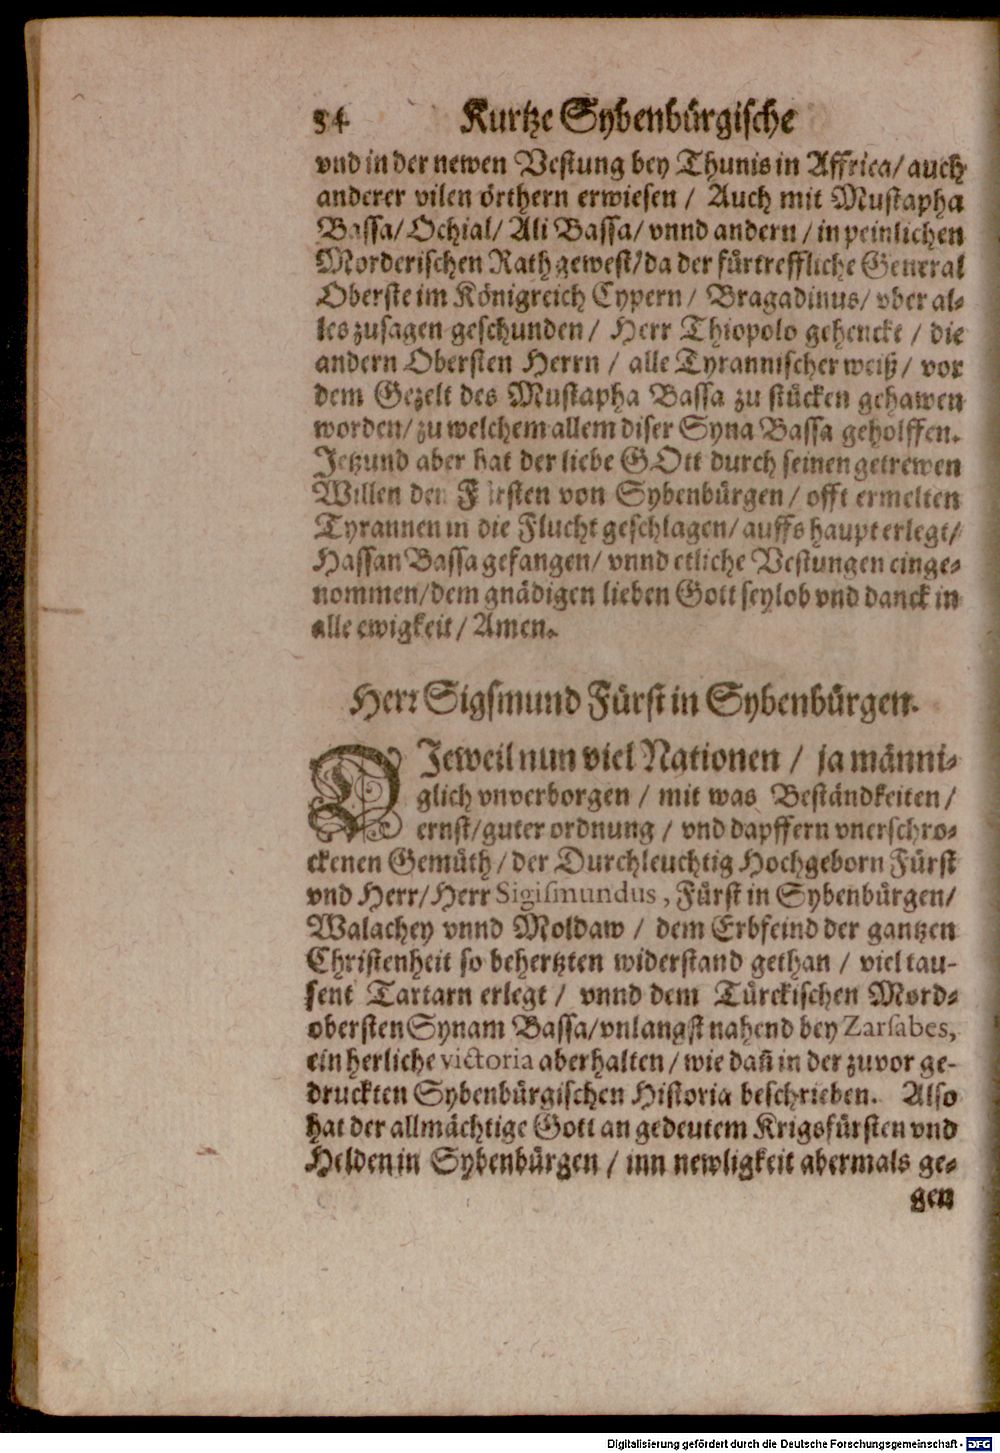 54 Kurtze Sybenbürgische
vnd in der newen Vestung bey Thunis in Affrica/ auch
anderer vilen örthern erwiesen / Auch mit Mustapha
Bassa/ Ochial/ Ali Bassa/ vnnd andern / in peinlichen
Morderischen Rath gewest/ da der fürtreffliche General
Oberste im Königreich Cypern / Bragadinus/ vber al-
les zusagen geschunden / Herr Thiopolo gehenckt / die
andern Obersten Herrn / alle Tyrannischer weiß/ vor
dem Gezelt des Mustapha Bassa zu stücken gehawen
worden/ zu welchem allem diser Syna Bassa geholffen.
Jetzund aber hat der liebe GOtt durch seinen getrewen
Willen den Fürsten von Sybenbürgen / offt ermelten
Tyrannen in die Flucht geschlagen/ auffs haupt erlegt/
Hassan Bassa gefangen/ vnnd etliche Vestungen einge-
nommen/ dem gnädigen lieben Gott sey lob vnd danck in
alle ewigkeit / Amen.
Herr Sigsmund Fürst in Sybenbürgen.
DJeweil nun viel Nationen / ja männi-
glich vnverborgen / mit was Beständkeiten /
ernst/ guter ordnung / vnd dapffern vnerschro-
ckenen Gemüth / der Durchleuchtig Hochgeborn Fürst
vnd Herr/ Herr Sigismundus, Fürst in Sybenbürgen/
Walachey vnnd Moldaw / dem Erbfeind der gantzen
Christenheit so behertzten widerstand gethan / viel tau-
sent Tartarn erlegt / vnnd dem Türckischen Mord-
obersten Synam Bassa/ vnlangst nahend bey Zarsabes,
ein herliche victoria aberhalten / wie dañ in der zuvor ge-
druckten Sybenbürgischen Historia beschrieben. Also
hat der allmächtige Gott an gedeutem Krigsfürsten vnd
Helden in Sybenbürgen / inn newligkeit abermals ge-
gen
Digitalisierung gefördert durch die Deutsche Forschungsgemeinschaft - DFG